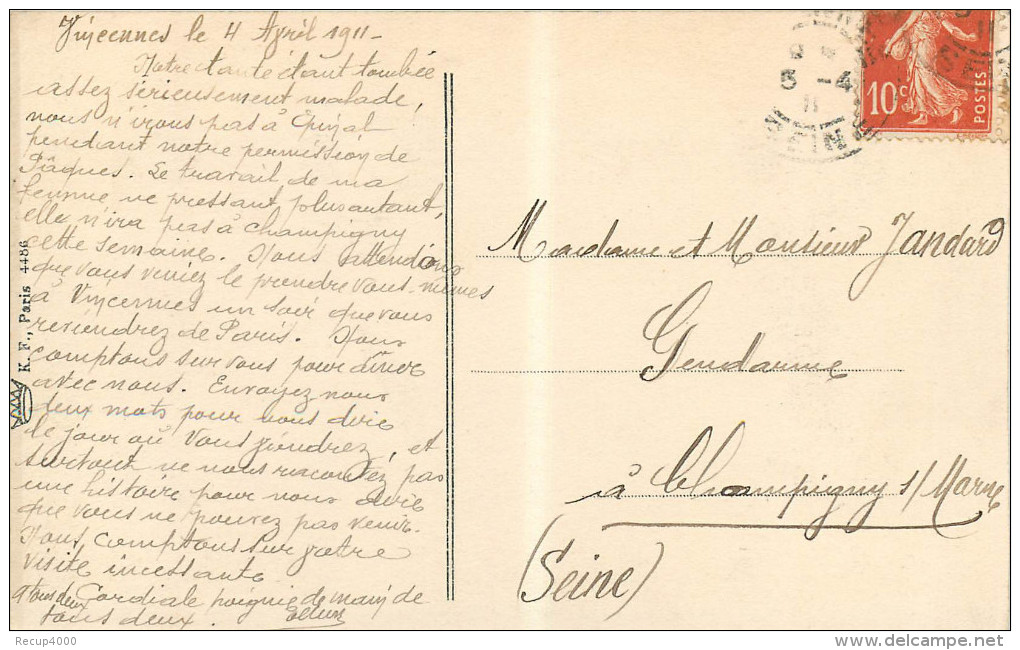 Vincennes le 4 Avril 1911-
Notre tante étant tombée
assez sérieusement malade,
nous n'irons pas à Epinal
pendant notre permission de
Pâques. Le travail de ma
femme ne pressant plus autant,
elle n'ira pas à Champigny
cette semaine. Nous attendons
que vous veniez le prendre vous-mêmes
à Vincennes un soir que vous
reviendrez de Paris. Nous
comptons sur vous pour dîner
avec nous. Envoyez nous
deux mots pour nous dire
le jour où vous viendrez, et
surtout ne nous racontez pas
une histoire pour nous dire
que vous ne pouvez pas venir.
Nous comptons sur votre
visite incessante
a tous deux Cordiale poignée de main de
tous deux.
K. F., Paris 4486
10c
POSTES
5 -4
11
Madame et Monsieur Jandard
Gendarme
à Champigny s/ Marne
(Seine)
Recup4000
delcampe.net